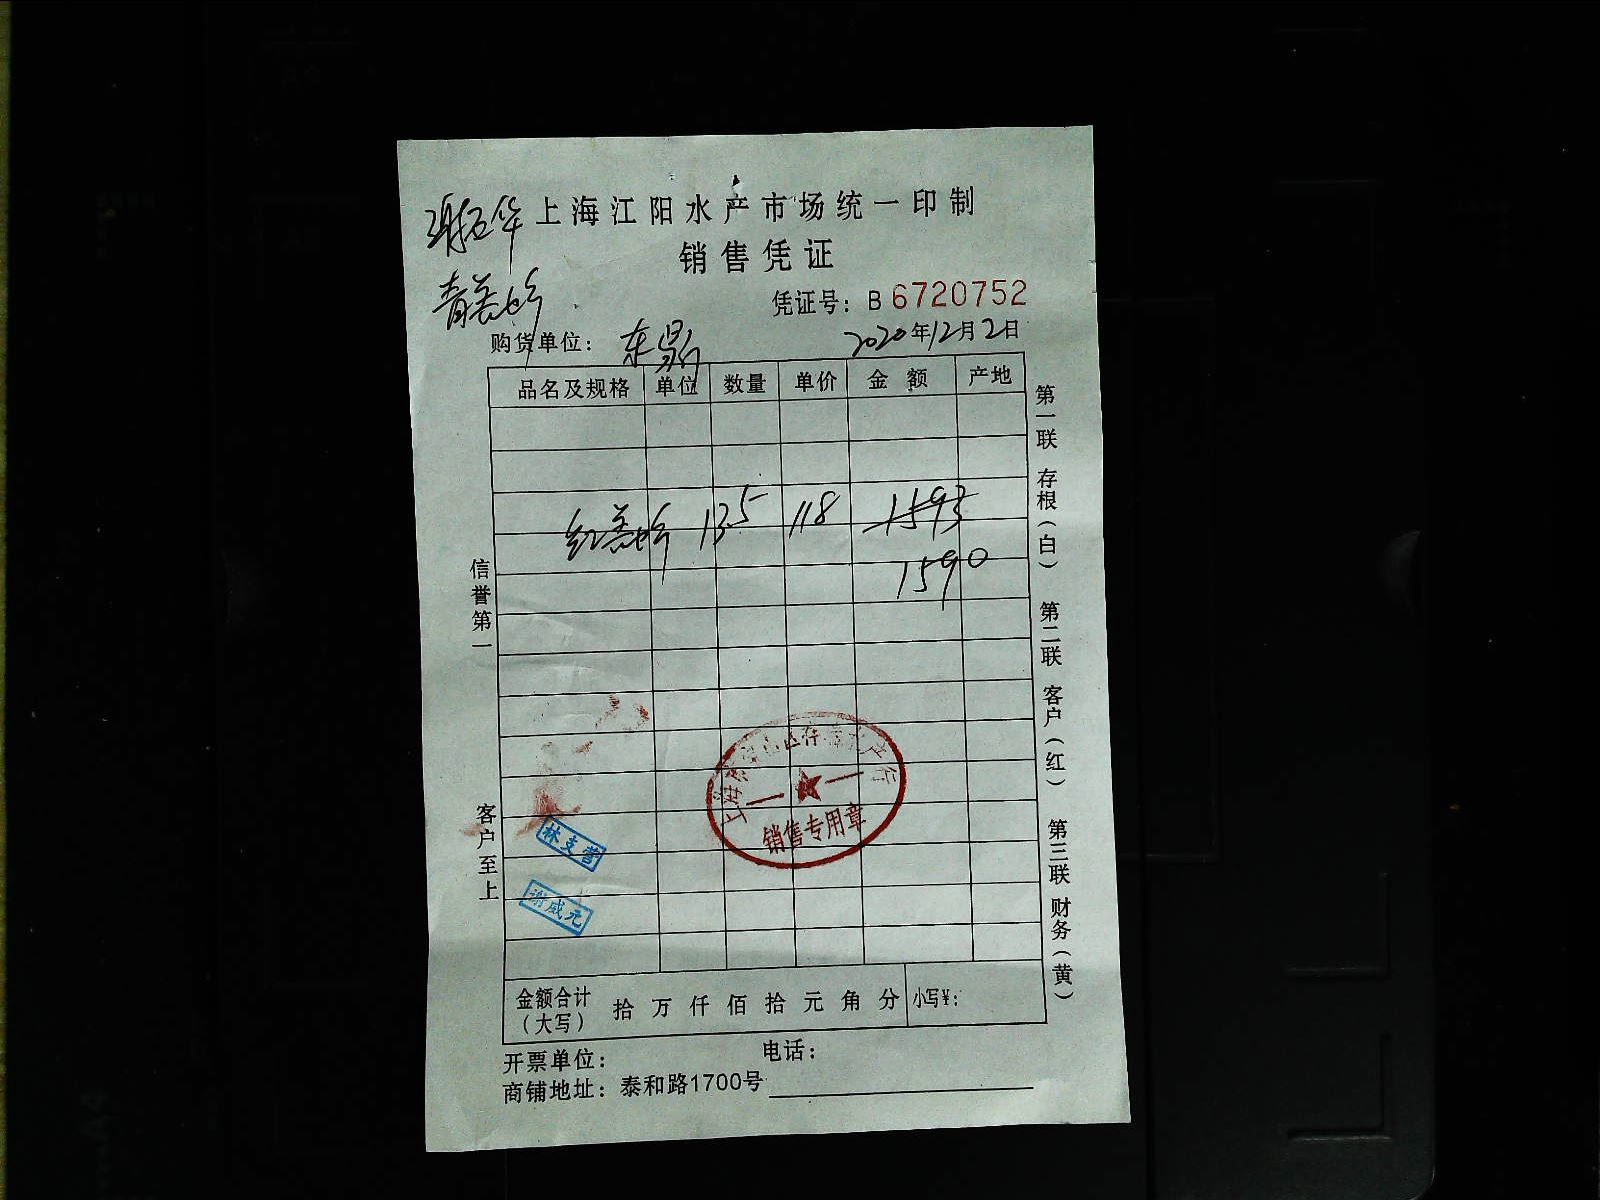 上海江阳水产市场统一印制
销售凭证
凭证号：B 6720752
购货单位：东
2020年12月2日
品名及规格 单位 数量 单价 金额 产地
红 13.5 118 1593
1590
信誉第一
客户至上
第一联 存根（白） 第二联 客户（红） 第三联 财务（黄）
上海
销售专用章
林支营
谢威元
金额合计（大写） 拾 万 仟 佰 拾 元 角 分 小写¥：
开票单位： 电话：
商铺地址：泰和路1700号